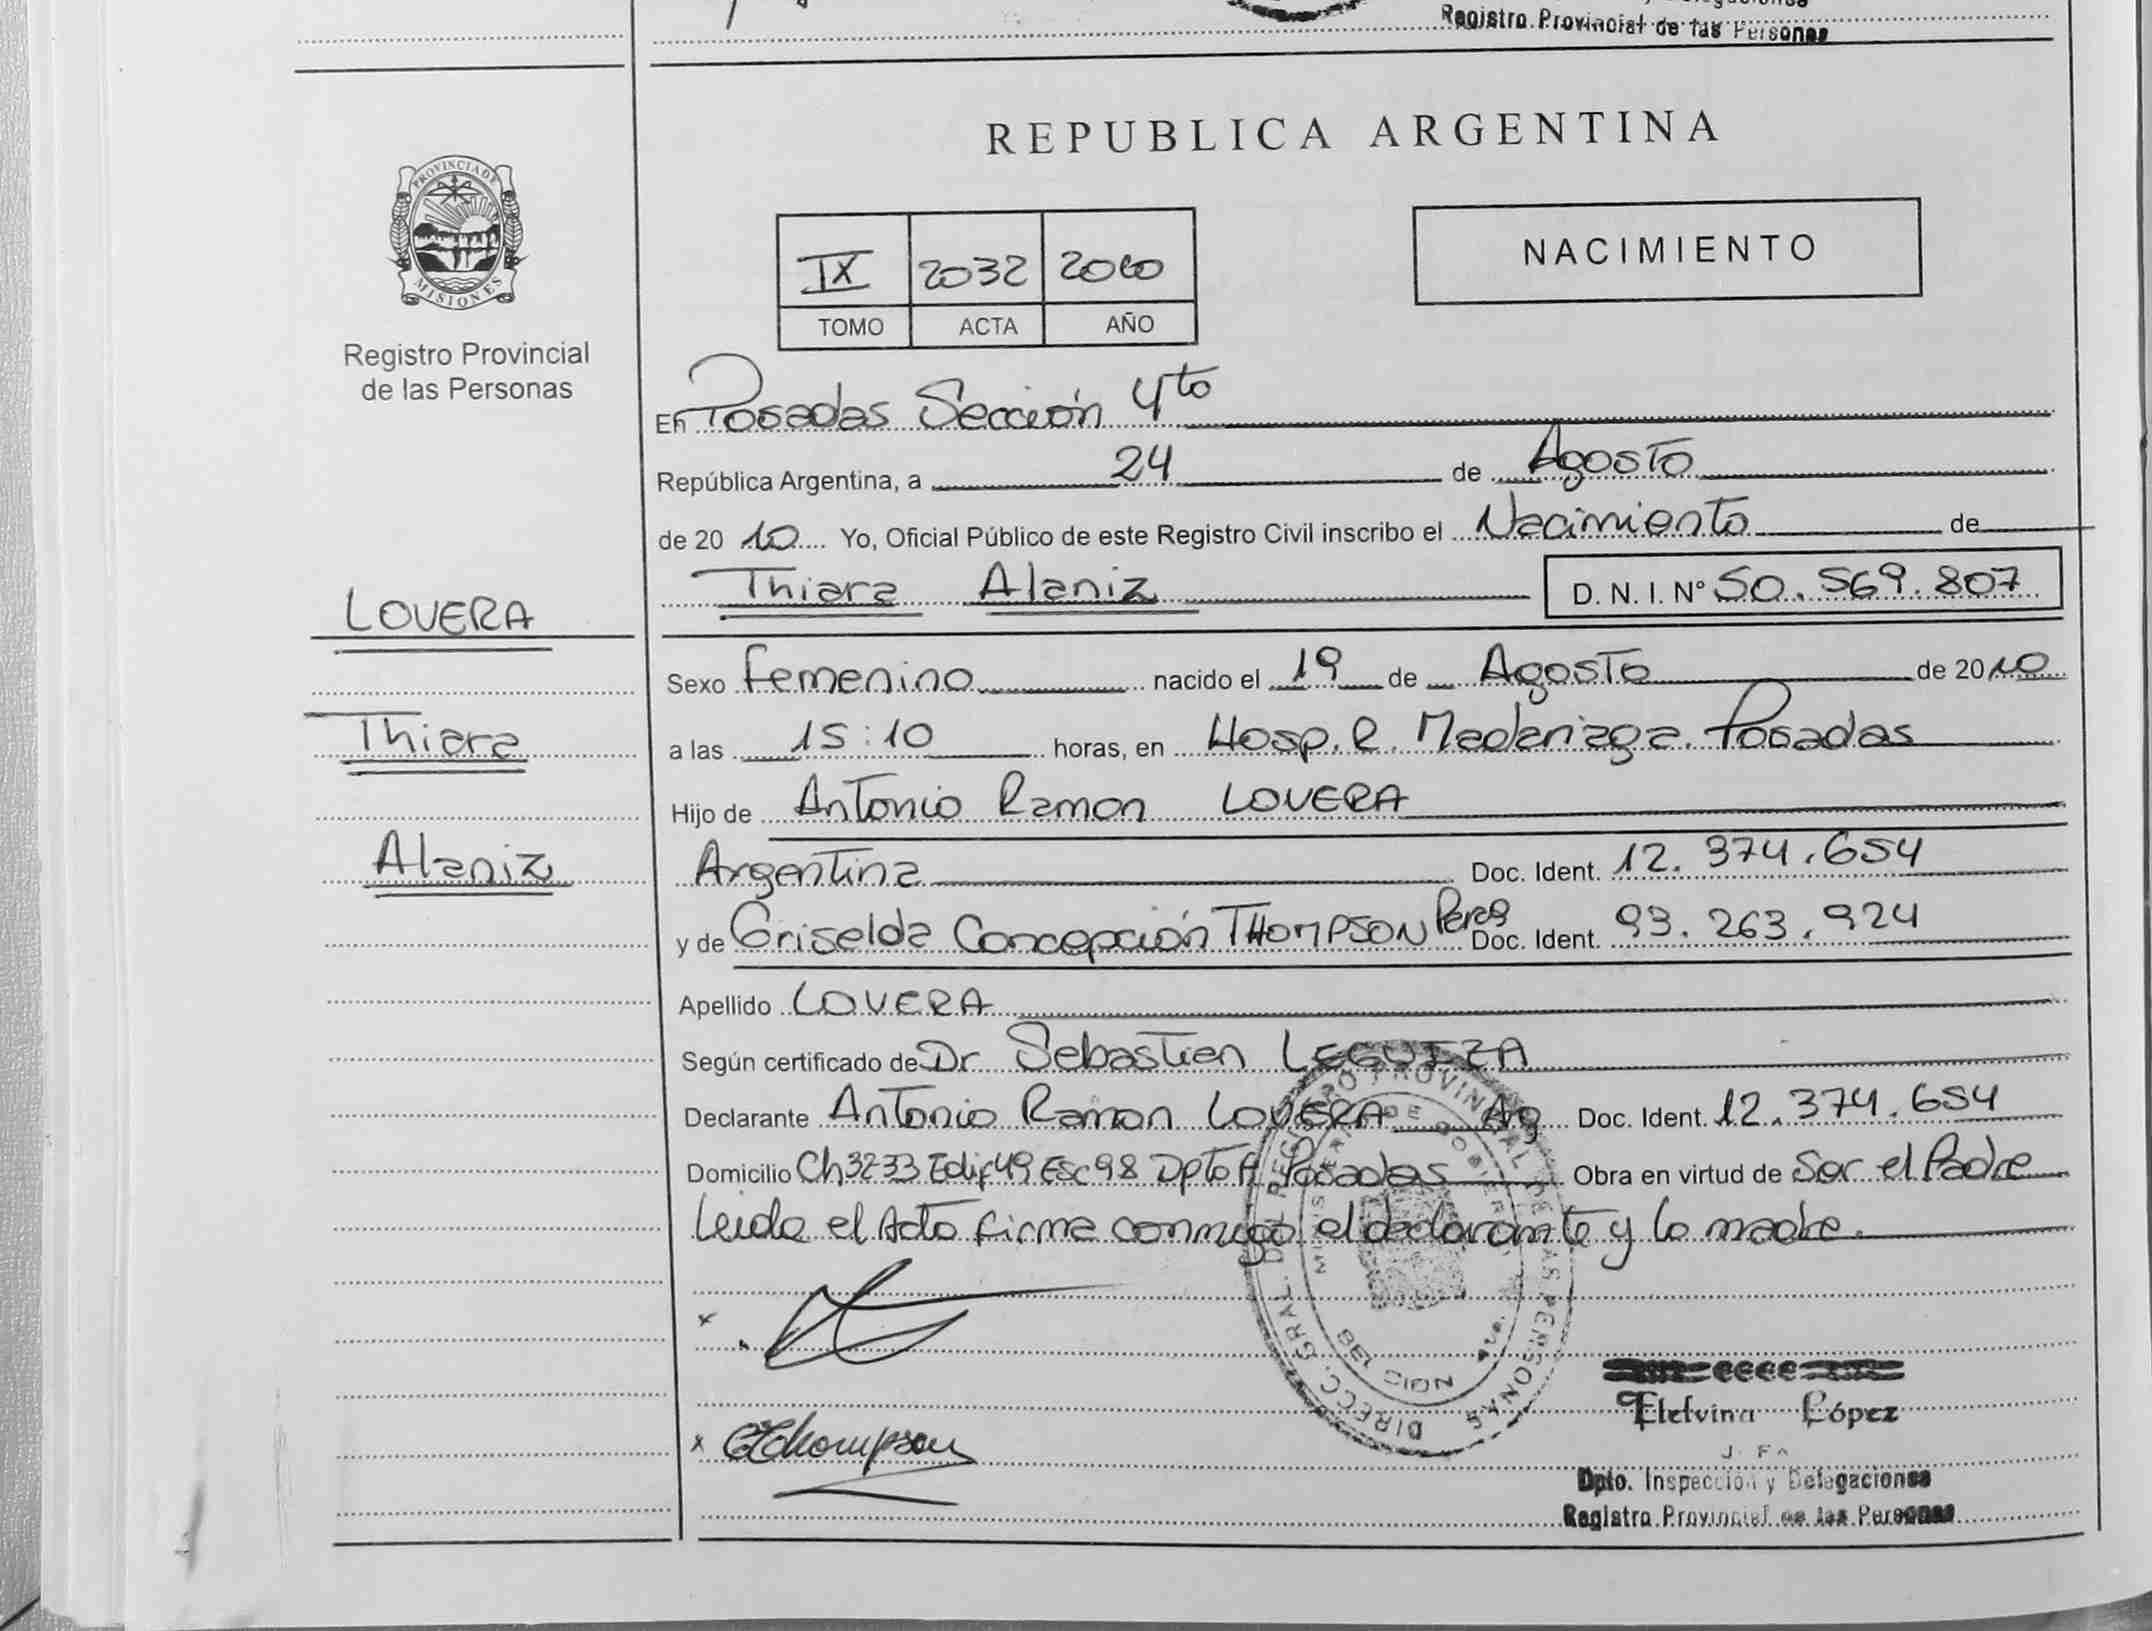 Registro Provincial de las Personas
PROVINCIA DE
MISIONES
Registro Provincial
de las Personas
LOVERA
Thiara
Alaniz
REPUBLICA ARGENTINA
IX 2032 2010
TOMO ACTA AÑO
NACIMIENTO
En Posadas Sección 4to
República Argentina, a 24 de Agosto
de 20 10 Yo, Oficial Público de este Registro Civil inscribo el Nacimiento de
Thiara Alaniz D. N. I. Nº 50.569.807
Sexo Femenino nacido el 19 de Agosto de 2010
a las 15:10 horas, en Hosp. R. Madariaga. Posadas
Hijo de Antonio Ramon LOVERA
Argentina Doc. Ident. 12.374.654
y de Griselda Concepción THOMPSON Doc. Ident. 93.263.924
Apellido LOVERA
Según certificado de Dr Sebastien LEGUIZA
Declarante Antonio Ramon LOVERA Ag Doc. Ident. 12.374.654
Domicilio Ch 32-33 Edif 49 Esc 98 Dpto A Posadas Obra en virtud de Ser el Padre
Leida el Acta firma conmigo el declarante y la madre.
x
x Thompson
DIRECC. GRAL. DEL REGISTRO PROVINCIAL DE LAS PERSONAS
MINISTERIO DE GOBIERNO
Eletvina López
Dpto. Inspección y Delegaciones
Registro Provincial de las Personas